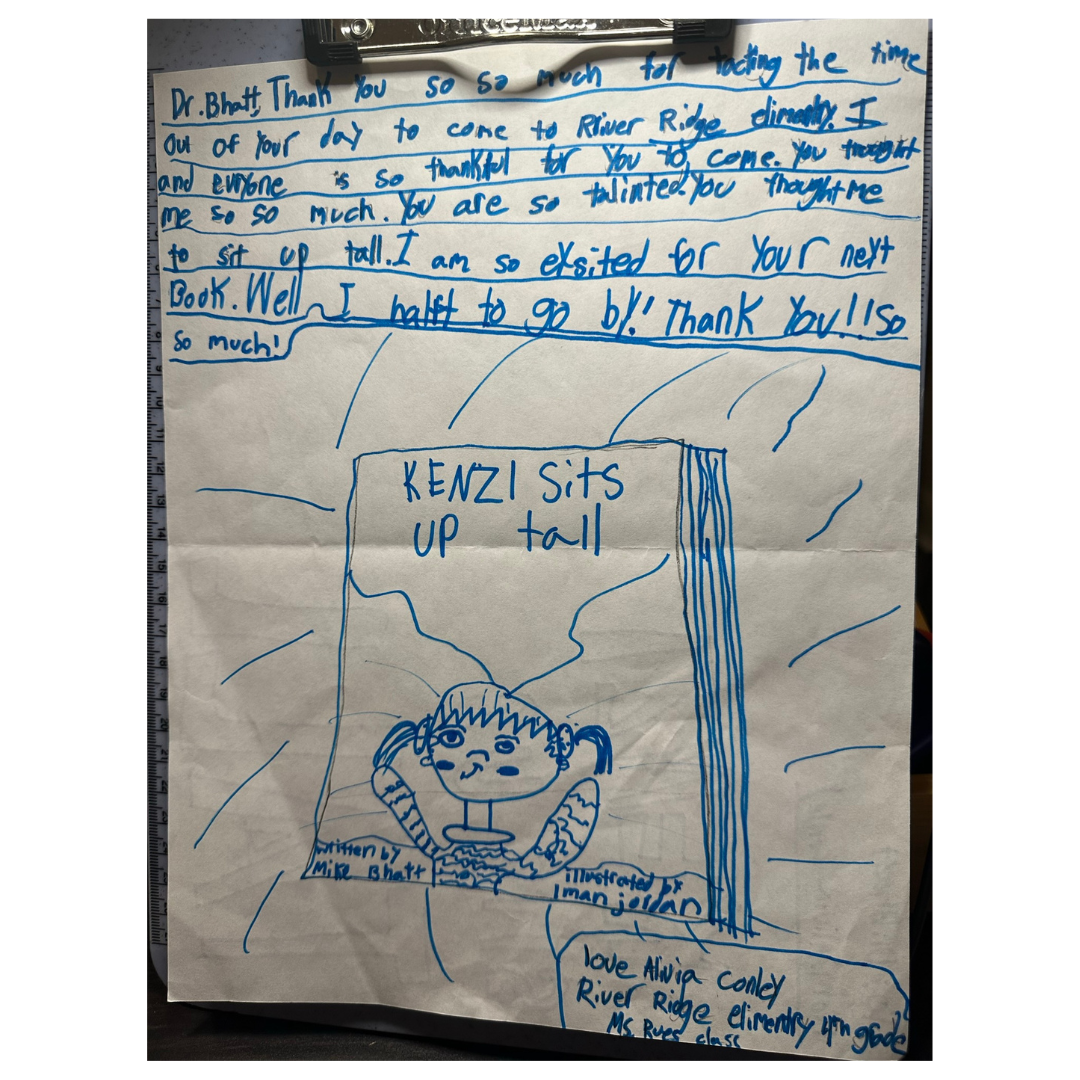 OfficeMax
Dr. Bhatt, Thank You so so much for tacting the time
out of Your day to come to River Ridge elimentry. I
and evryone is so thankful for You to come. You
me so so much. You are so talinted. You thought me
to sit up tall. I am so exsited for Your next
Book. Well I halft to go by! Thank You!! So
so much!
KENZI Sits
UP tall
written by
Mike Bhatt
illustrated by
Iman jordan
love Alivia Conley
River Ridge elimentry 4th grade
Ms. Rues class